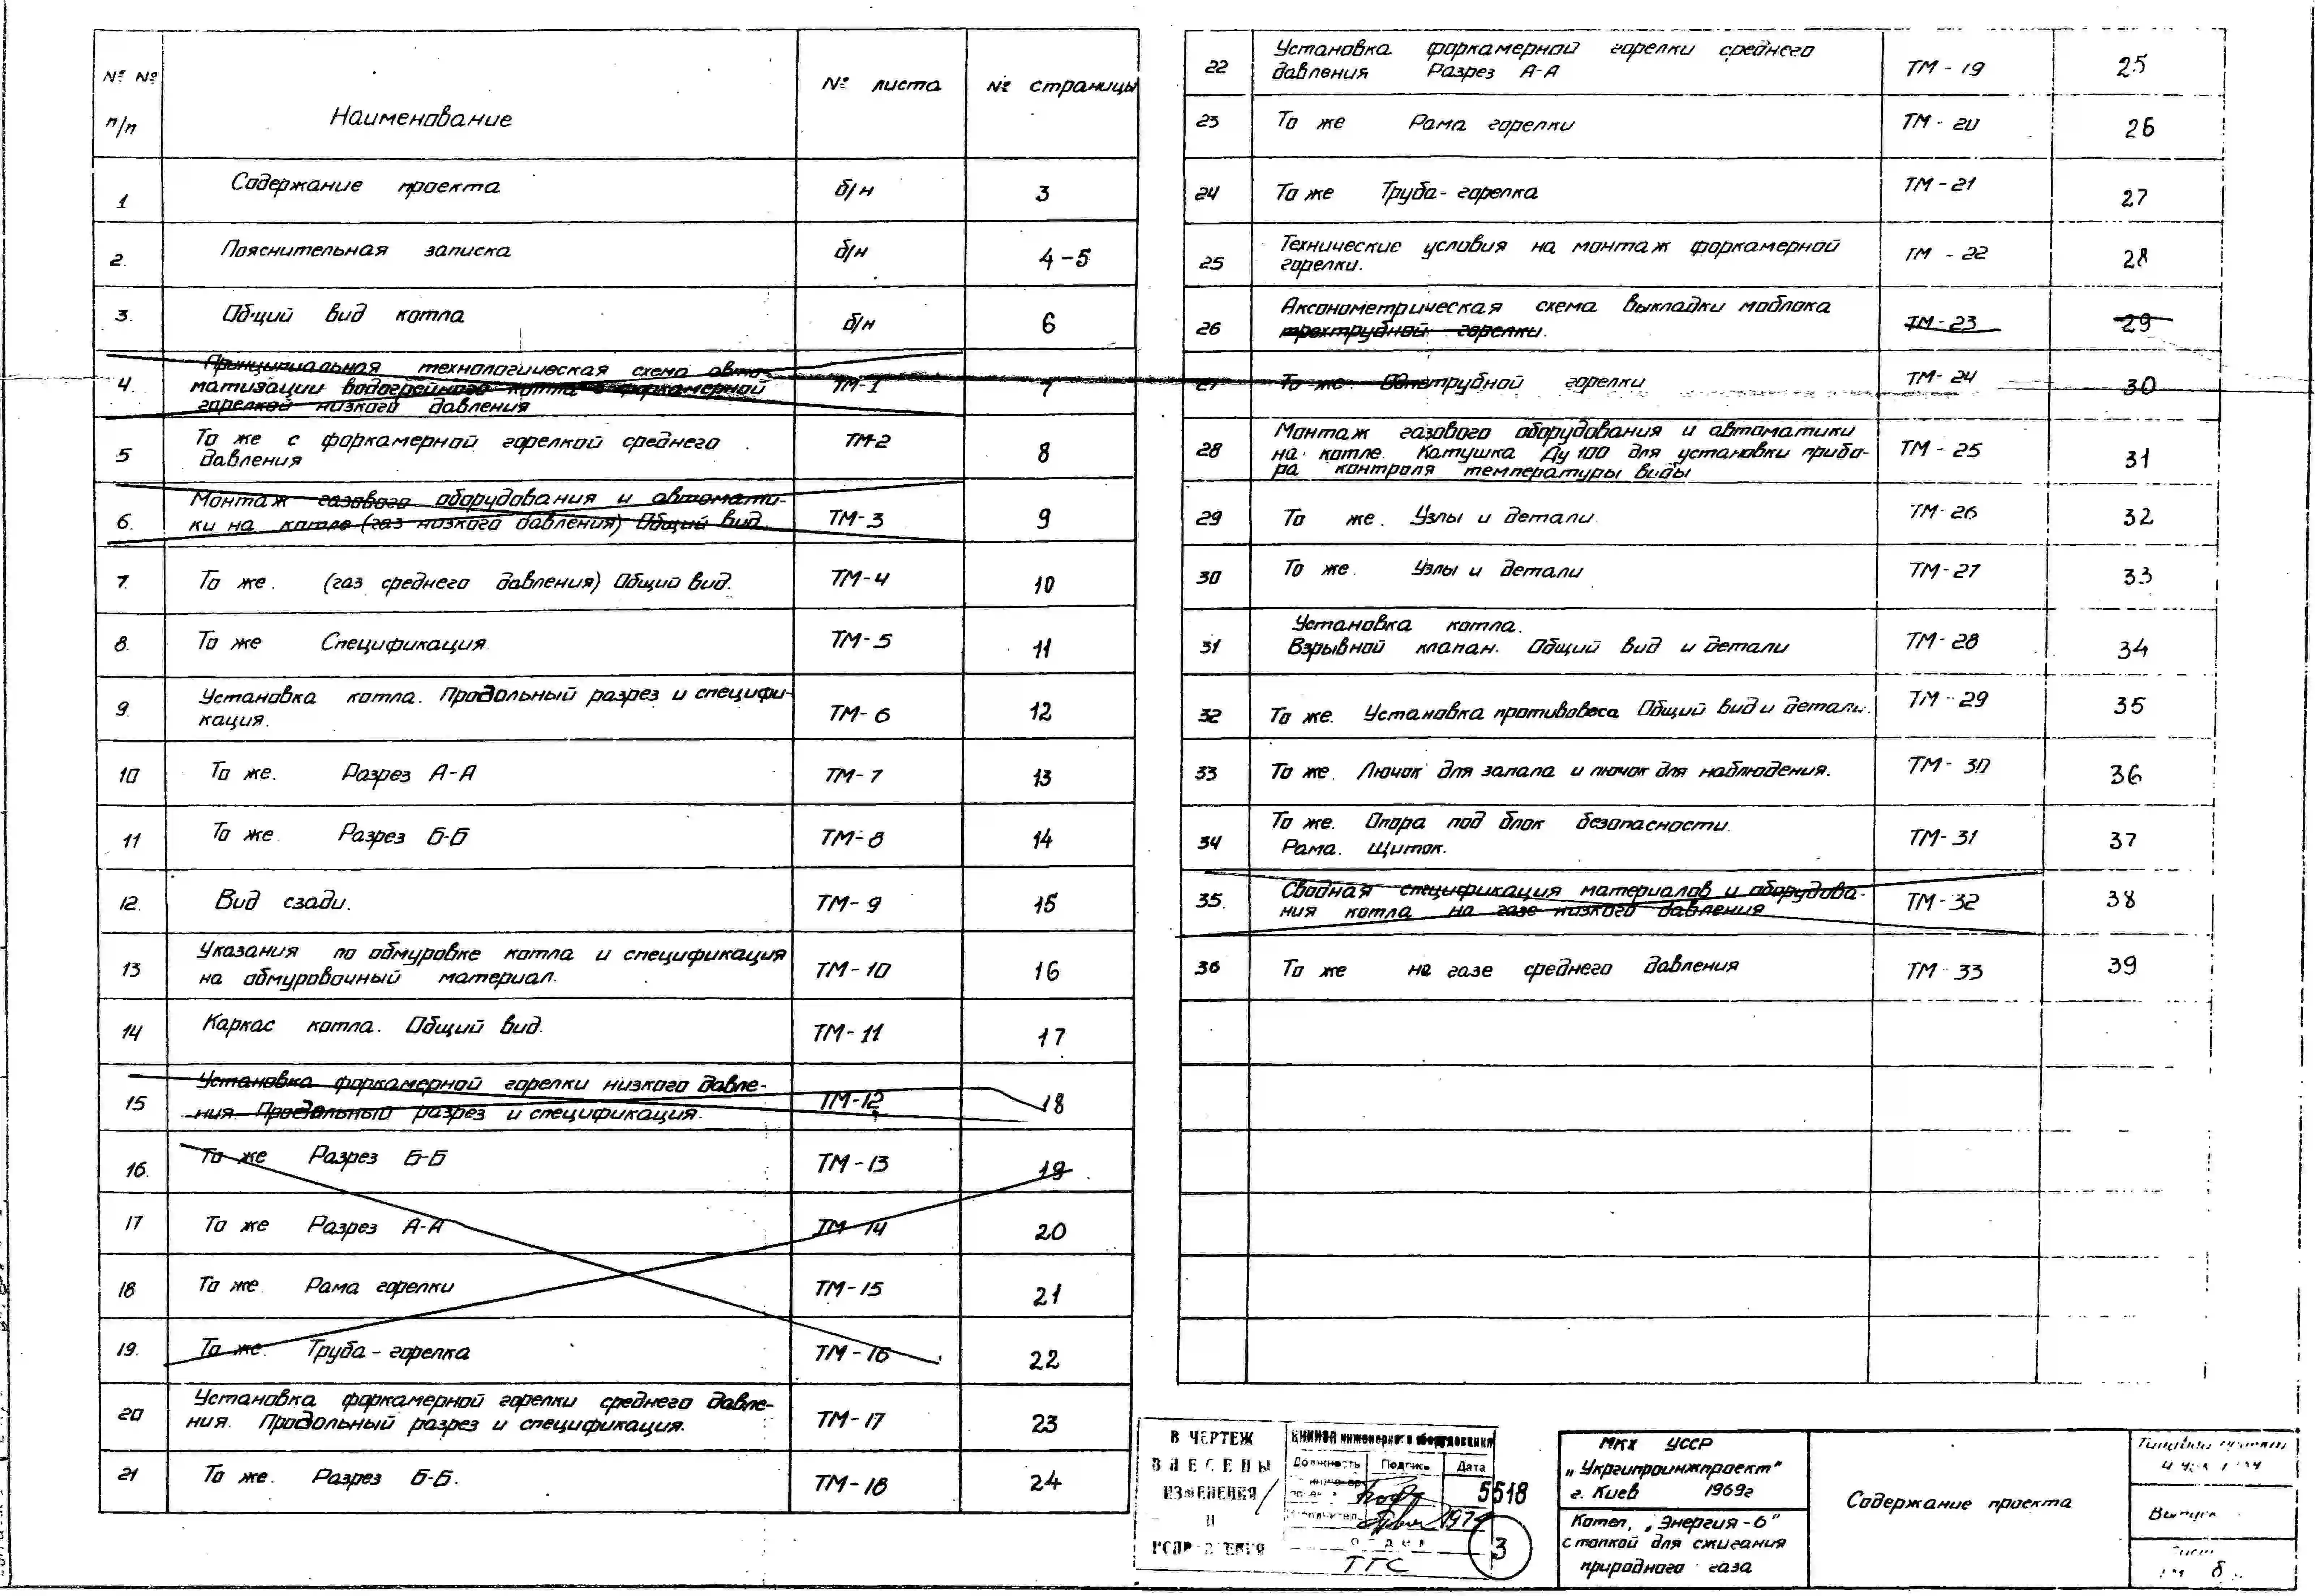 № № п/п Наименование № листа № страницы
1 Содержание проекта б/н 3
2. Пояснительная записка б/н 4-5
3. Общий вид котла б/н 6
4. Принципиальная технологическая схема авто-
матизации водогрейного котла с форкамерной ТМ-1 7
горелкой низкого давления
5 То же с форкамерной горелкой среднего ТМ-2 8
давления
6. Монтаж газового оборудования и автомати-
ки на котле (газ низкого давления) Общий вид. ТМ-3 9
7. То же. (газ среднего давления) Общий вид. ТМ-4 10
8. То же Спецификация ТМ-5 11
9. Установка котла. Продольный разрез и специфи-
кация. ТМ-6 12
10 То же. Разрез А-А ТМ-7 13
11 То же. Разрез Б-Б ТМ-8 14
12. Вид сзади. ТМ-9 15
13 Указания по обмуровке котла и спецификация
на обмуровочный материал. ТМ-10 16
14 Каркас котла. Общий вид. ТМ-11 17
15 Установка форкамерной горелки низкого давле-
ния. Продольный разрез и спецификация. ТМ-12 18
16. То же Разрез Б-Б ТМ-13 19
17 То же Разрез А-А ТМ-14 20
18 То же. Рама горелки ТМ-15 21
19. То же. Труба-горелка ТМ-16 22
20 Установка форкамерной горелки среднего давле-
ния. Продольный разрез и спецификация. ТМ-17 23
21 То же. Разрез Б-Б. ТМ-18 24
22 Установка форкамерной горелки среднего
давления Разрез А-А ТМ-19 25
23 То же Рама горелки ТМ-20 26
24 То же Труба-горелка ТМ-21 27
25 Технические условия на монтаж форкамерной ТМ-22 28
горелки.
26 Аксонометрическая схема выкладки моблока
трехтрубной горелки. ТМ-23 29
27 То же. Однотрубной горелки ТМ-24 30
28 Монтаж газового оборудования и автоматики
на котле. Катушка Ду 100 для установки прибо- ТМ-25 31
ра контроля температуры воды
29 То же. Узлы и детали. ТМ-26 32
30 То же. Узлы и детали ТМ-27 33
31 Установка котла.
Взрывной клапан. Общий вид и детали ТМ-28 34
32 То же. Установка противовеса Общий вид и детали. ТМ-29 35
33 То же. Лючок для запала и лючок для наблюдения. ТМ-30 36
34 То же. Опора под блок безопасности.
Рама. Щиток. ТМ-31 37
35. Сводная спецификация материалов и оборудова-
ния котла на газе низкого давления ТМ-32 38
36 То же на газе среднего давления ТМ-33 39
В ЧЕРТЕЖ
ВНЕСЕНЫ
ИЗМЕНЕНИЯ
И
ИСПРАВЛЕНИЯ
ЦНИИЭП инженерного оборудования
Должность Подпись Дата
1974
Отдел
ТГС
5518
3
МКХ УССР
„Укргипроинжпроект"
г. Киев 1969г
Котел „Энергия-6"
с топкой для сжигания
природного газа
Содержание проекта
Типовой проект
Выпуск
Лист